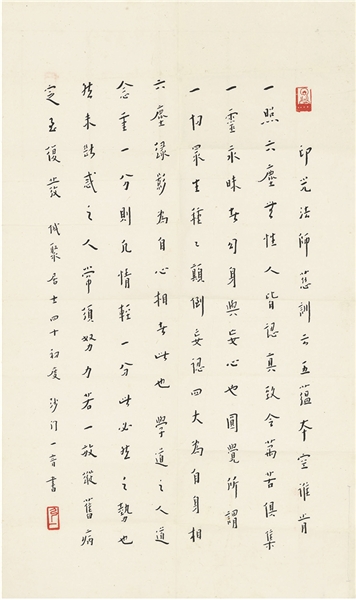 印光法師慈訓云五蘊本空誰肯
一照六塵無性人皆認真致令萬苦俱集
一靈永昧者幻身與妄心也圓覺所謂
一切眾生種種顛倒妄認四大為自身相
六塵緣影為自心相者此也學道之人道
念重一分則凡情輕一分此必然之勢也
然未斷惑之人常須努力若一放縱舊病
定至復發 城聚居士四十初度沙門一音書